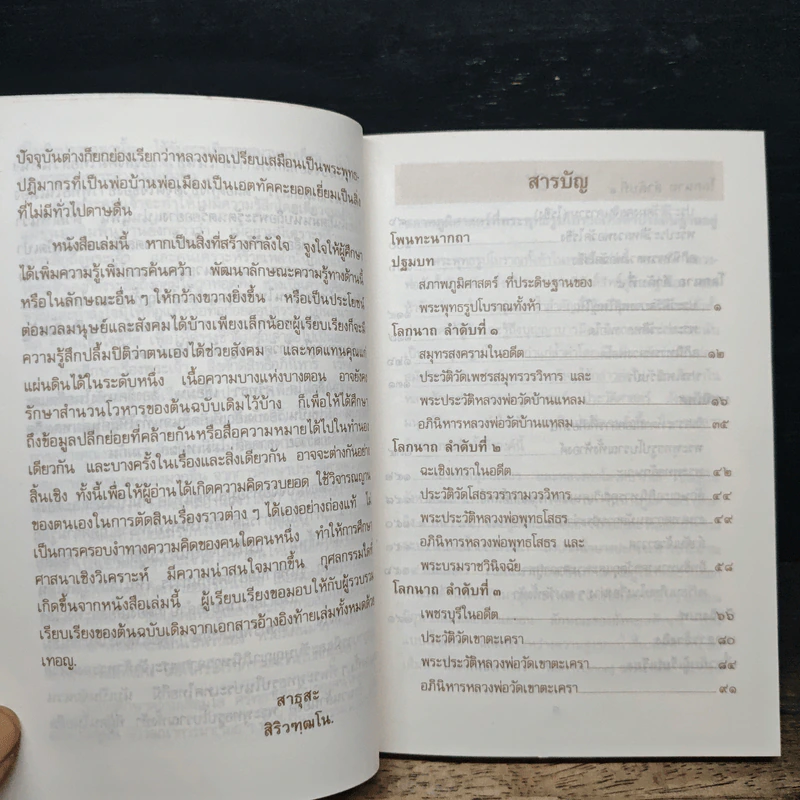 ปัจจุบันต่างก็ยกย่องเรียกว่าหลวงพ่อเปรียบเสมือนเป็นพระพุทธ-
ปฏิมากรที่เป็นพ่อบ้านพ่อเมืองเป็นเอตทัคคะยอดเยี่ยมเป็นสิ่ง
ที่ไม่มีทั่วไปดาษดื่น
หนังสือเล่มนี้ หากเป็นสิ่งที่สร้างกำลังใจ จูงใจให้ผู้ศึกษา
ได้เพิ่มความรู้เพิ่มการค้นคว้า พัฒนาลักษณะความรู้ทางด้านนี้
หรือในลักษณะอื่น ๆ ให้กว้างขวางยิ่งขึ้น หรือเป็นประโยชน์
ต่อมวลมนุษย์และสังคมได้บ้างเพียงเล็กน้อยผู้เรียบเรียงก็จะมี
ความรู้สึกปลื้มปิติว่าตนเองได้ช่วยสังคม และทดแทนคุณแก่
แผ่นดินได้ในระดับหนึ่ง เนื้อความบางแห่งบางตอน อาจยังคง
รักษาสำนวนโวหารของต้นฉบับเดิมไว้บ้าง ก็เพื่อให้ได้ศึกษา
ถึงข้อมูลปลีกย่อยที่คล้ายกันหรือสื่อความหมายได้ไปในทำนอง
เดียวกัน และบางครั้งในเรื่องและสิ่งเดียวกัน อาจจะต่างกันอย่าง
สิ้นเชิง ทั้งนี้เพื่อให้ผู้อ่านได้เกิดความคิดรวบยอด ใช้วิจารณญาณ
ของตนเองในการตัดสินเรื่องราวต่าง ๆ ได้เองอย่างถ่องแท้
เป็นการครอบงำทางความคิดของคนใดคนหนึ่ง ทำให้การศึกษา
ศาสนาเชิงวิเคราะห์ มีความน่าสนใจมากขึ้น กุศลกรรมใดที่
เกิดขึ้นจากหนังสือเล่มนี้ ผู้เรียบเรียงขอมอบให้กับผู้รวบรวม
เรียบเรียงของต้นฉบับเดิมจากเอกสารอ้างอิงท้ายเล่มทั้งหมดด้วย
เทอญ.
สาธุสะ
สิริวฑฺฒโน.
สารบัญ
โพนทะนากถา
ปฐมบท
สภาพภูมิศาสตร์ ที่ประดิษฐานของ
พระพุทธรูปโบราณทั้งห้า ๑
โลกนาถ ลำดับที่ ๑
สมุทรสงครามในอดีต ๑๒
ประวัติวัดเพชรสมุทรวรวิหาร และ
พระประวัติหลวงพ่อวัดบ้านแหลม ๑๖
อภินิหารหลวงพ่อวัดบ้านแหลม ๓๕
โลกนาถ ลำดับที่ ๒
ฉะเชิงเทราในอดีต ๔๒
ประวัติวัดโสธรวรารามวรวิหาร ๔๔
พระประวัติหลวงพ่อพุทธโสธร ๔๙
อภินิหารหลวงพ่อพุทธโสธร และ
พระบรมราชวินิจฉัย ๕๘
โลกนาถ ลำดับที่ ๓
เพชรบุรีในอดีต ๖๖
ประวัติวัดเขาตะเครา ๘๐
พระประวัติหลวงพ่อวัดเขาตะเครา ๘๔
อภินิหารหลวงพ่อวัดเขาตะเครา ๙๑